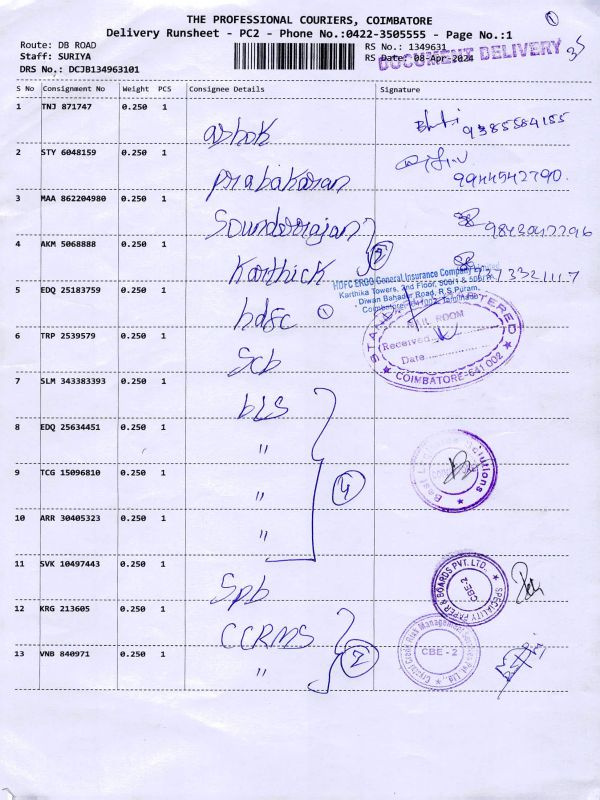 THE PROFESSIONAL COURIERS, COIMBATORE
Delivery Runsheet - PC2 - Phone No.:0422-3505555 - Page No.:1
1
Route: DB ROAD
Staff: SURIYA
DRS No.: DCJB134963101
RS No.: 1349631
RS Date: 08-Apr-2024
DOCUMENT DELIVERY
35
S No Consignment No Weight PCS Consignee Details Signature
1 TNJ 871747 0.250 1 ashok 9385584155
2 STY 6048159 0.250 1 prabakaran 9944542790.
3 MAA 862204980 0.250 1 Sounderrajan
4 AKM 5068888 0.250 1 Karthick 2
HDFC ERGO General Insurance Company Limited
Karthika Towers, 2nd Floor, 506/1 & 506/
Diwan Bahadur Road, R.S.Puram,
Coimbatore-641002, Tamilnadu
5 EDQ 25183759 0.250 1 hdfc 1
6 TRP 2539579 0.250 1 Scb
STAN CHARTERED
MAIL ROOM
Received
Date
COIMBATORE-641 002
7 SLM 343383393 0.250 1 bLS
8 EDQ 25634451 0.250 1 "
9 TCG 15096810 0.250 1 " 4
Solutions
10 ARR 30405323 0.250 1 "
11 SVK 10497443 0.250 1 Spb
SPECIALITY PAPER & BOARDS PVT. LTD.
CBE-2
12 KRG 213605 0.250 1 CCRMS
13 VNB 840971 0.250 1 " 2
Risk Management Services Pvt Ltd.,
CBE - 2